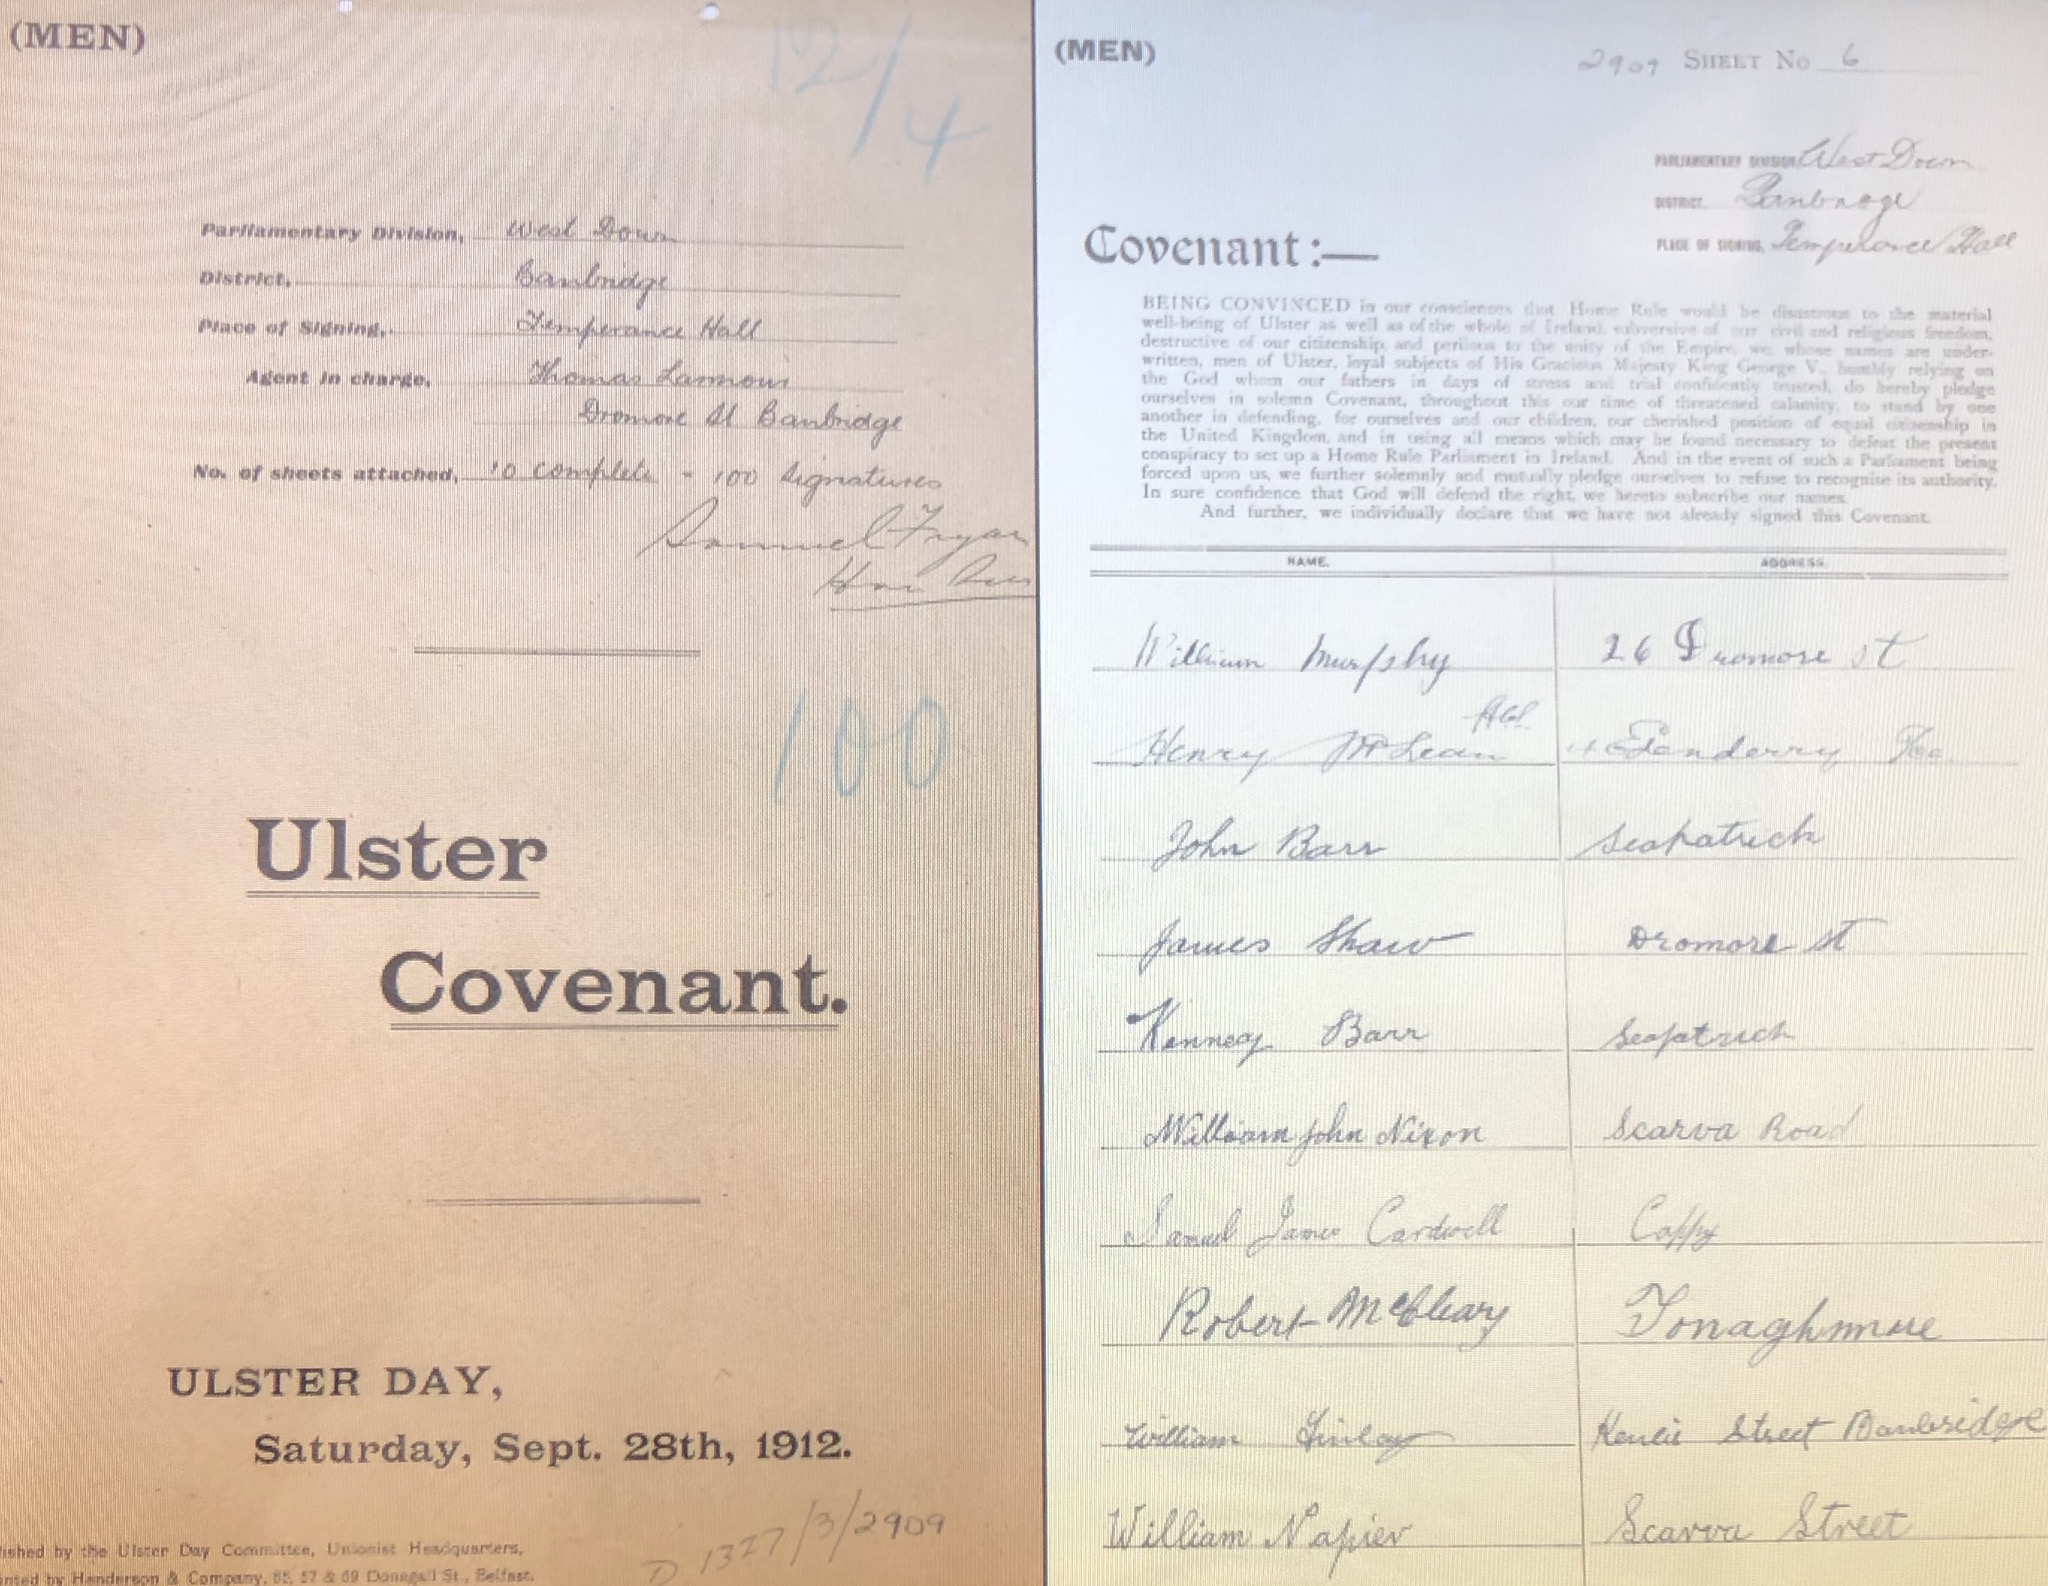 (MEN)
12/4
Parliamentary Division, West Down
District, Banbridge
Place of Signing, Temperance Hall
Agent in charge, Thomas Lamour
Dromore St Banbridge
No. of sheets attached, 10 complete - 100 signatures
Samuel Fryar
Hon Sec
100
Ulster
Covenant.
ULSTER DAY,
Saturday, Sept. 28th, 1912.
D 1327/3/2909
ished by the Ulster Day Committee, Unionist Headquarters,
nted by Henderson & Company, 55, 57 & 59 Donegall St., Belfast.
(MEN)
2909 SHEET No 6
PARLIAMENTARY DIVISION, West Down
DISTRICT, Banbridge
PLACE OF SIGNING, Temperance Hall
Covenant:—
BEING CONVINCED in our consciences that Home Rule would be disastrous to the material
well-being of Ulster as well as of the whole of Ireland, subversive of our civil and religious freedom,
destructive of our citizenship, and perilous to the unity of the Empire, we, whose names are under-
written, men of Ulster, loyal subjects of His Gracious Majesty King George V., humbly relying on
the God whom our fathers in days of stress and trial confidently trusted, do hereby pledge
ourselves in solemn Covenant, throughout this our time of threatened calamity, to stand by one
another in defending, for ourselves and our children, our cherished position of equal citizenship in
the United Kingdom, and in using all means which may be found necessary to defeat the present
conspiracy to set up a Home Rule Parliament in Ireland. And in the event of such a Parliament being
forced upon us, we further solemnly and mutually pledge ourselves to refuse to recognise its authority.
In sure confidence that God will defend the right, we hereto subscribe our names.
And further, we individually declare that we have not already signed this Covenant.
NAME. ADDRESS.
William Murphy 26 Dromore st
Henry McLean
John Barr Seapatrick
James Shaw Dromore st
Kennedy Barr Seapatrick
William John Nixon Scarva Road
Samuel James Cardwell
Robert McCleary Donaghmore
William Finlay Kenlis Street Banbridge
William Napier Scarva Street